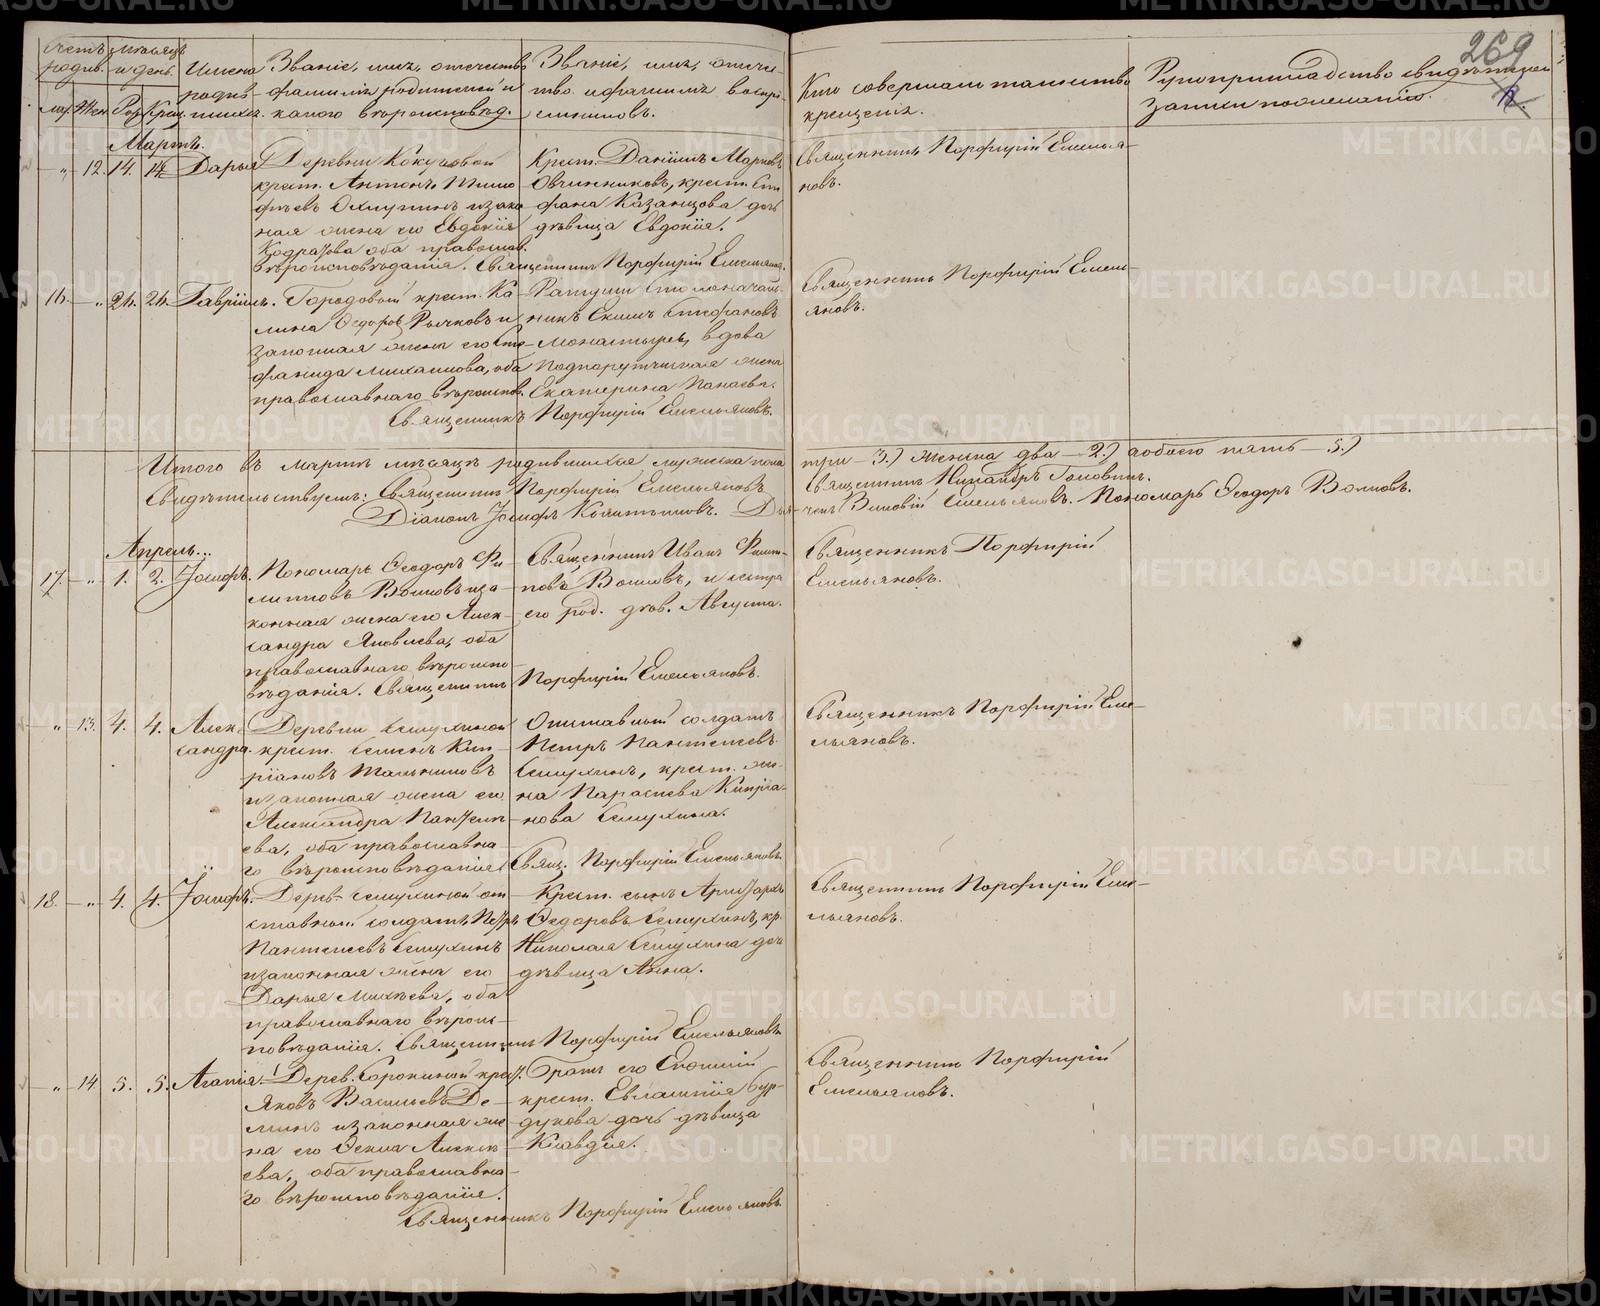 269
Счетъ родив. Мѣсяцъ и день. Имена родив-шихся. Званіе, имя, отчество, фамилія родителей и какого вѣроисповѣд. Званіе, имя, отче-ство и фамилія воспрі-емниковъ. Кто совершалъ таинство крещенія. Рукоприкладство свидѣтелей записи по желанію.
муж. Жен. Род. Крещ.
Мартъ.
„ 12. 14. 14. Дарья
Деревни Кокушовой
крест. Антонъ Тимо
фѣевъ Охлупинъ и зако
нная жена его Евдокія
Кодратова оба правосл.
вѣроисповѣданія. Священникъ Порфирій Емельяновъ.
Крест. Даніилъ Марковъ
Овчинниковъ, крест. Сте
фана Казанцова дочь
дѣвица Евдокія.
Священникъ Порфирій Емелья-
новъ.
16. „ 24. 24. Гавріилъ.
Городовой крест. Ка
лина Ѳедоровъ Рычковъ и
законная жена его Сте
фанида Михаилова, оба
православнаго вѣроиспов.
Ратуши столоначаль
никъ Екимъ Стефановъ
Монастыревъ, вдова
подпорутчическая жена
Екатерина Панаева.
Священникъ Порфирій Емельяновъ.
Священникъ Порфирій Емель-
яновъ.
Итого въ мартѣ мѣсяцѣ родившихся мужеска пола три — 3.) женска два — 2.) а обоего пять — 5.)
Свидѣтельствуемъ: Священникъ Порфирій Емельяновъ Священникъ Никандръ Головинъ.
Діаконъ Іосифъ Калятиновъ. Дья-чекъ Зиновій Емельяновъ. Пономарь Ѳеодоръ Волковъ.
Апрель...
17. „ 1. 2. Іосифъ.
Пономарь Ѳеодоръ Фи
липповъ Волковъ и за
конная жена его Алек-
сандра Яковлева, оба
православнаго вѣроиспо-
вѣданія. Священникъ Порфирій Емельяновъ.
Священникъ Иванъ Филип-
повъ Волковъ, и сестра
его род. дѣв. Августа.
Священникъ Порфирій
Емельяновъ.
„ 13. 4. 4. Алек-
сандра.
Деревни Семухиной
крест. Семенъ Кип-
ріановъ Тальниковъ
и законная жена его
Александра Пантеле-
ева, оба православна-
го вѣроисповѣданія. Свящ. Порфирій Емельяновъ.
Отставный солдатъ
Петръ Пантелеевъ
Семухинъ, крест. же-
на Параскева Кипріа-
нова Семухина.
Священникъ Порфирій Еме-
льяновъ.
18. „ 4. 4. Іосифъ.
Дерев. Семухиной от
ставный солдатъ Петръ
Пантелеевъ Семухинъ
и законная жена его
Дарья Михѣева, оба
православнаго вѣроис-
повѣданія. Священникъ Порфирій Емельяновъ
Крест. сынъ Аристархъ
Ѳедоровъ Семухинъ, кр.
Николая Семухина доч
дѣвица Анна.
Священникъ Порфирій Еме-
льяновъ.
„ 14. 5. 5. Агапія.
Дерев. Сорокиной крест.
Яковъ Васильевъ Де-
минъ и законная же
на его Ѳекла Алексѣ-
ева, оба православна-
го вѣроисповѣданія.
Братъ его
крест. Евлампія Бур-
дукова дочь дѣвица
Клавдія.
Священникъ Порфирій Емельяновъ
Священникъ Порфирій
Емельяновъ.
METRIKI.GASO-URAL.RU